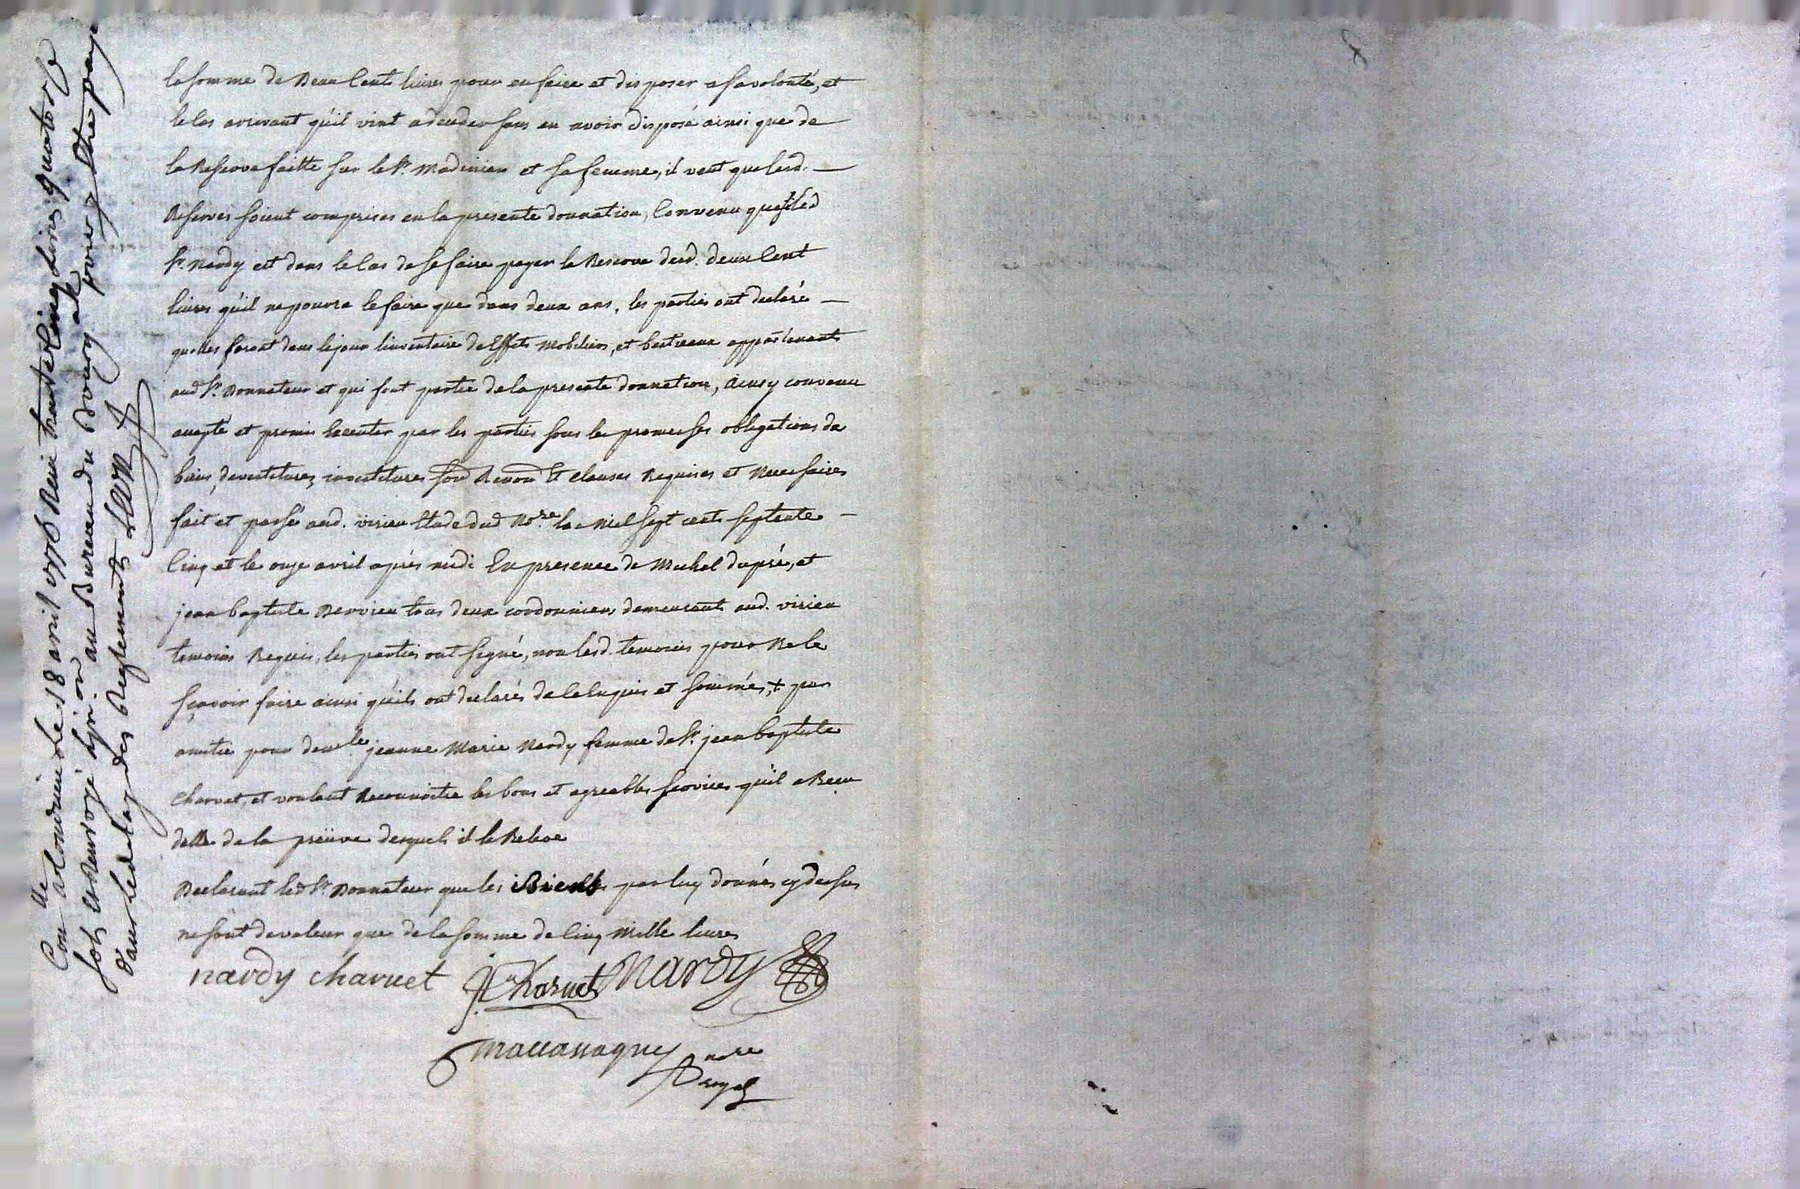 la somme de Deux Cents livres pour en faire et disposer a sa volonté, et
le Cas arrivant qu'il vint a deceder sans en avoir disposé ainsi que de
la Reserve faitte sur le Sr. Madinier et sa femme, il veut que lesd.
Reserves soient comprises en la presente donnation, Convenu que si led
Sr. Nardy est dans le Cas de se faire payer la Reserve desd. deux Cent
livres qu'il ne pourra le faire que dans deux ans, les parties ont declaré
quelles feront dans le jour linventaire des Effets mobiliers, et bestieaux appartenants
aud Sr. Donnateur et qui font partie de la presente donnation, ainsy convenu
accepté et promis executer par les parties sous les promesses obligations de
biens, devestitures, investitures Et clauses Requises et Necessaires
fait et passé aud. virieu Etude dud Nore. La Mil sept cents septente
Cinq et le onze avril après midi En presence de Michel dupré, et
jean baptiste Bervieu tous deux cordonniers demeurants aud. virieu
temoins Requis, les parties ont signé, non lesd. temoins pour Ne le
sçavoir faire ainsi qu'ils ont declarés de ce Enquis et sommés, + par
amitie pour demlle jeanne Marie Nardy femme de Sr. jean baptiste
Charvet, et voulant Reconnoitre les bons et agreables services qu'il a Reçu
delle de la preüve desquels il la Releve
Declarant led Sr Donnateur que les Biens par luy donnés cy dessus
ne sont de valeur que de la somme de Cinq Mille livres
nardy charuet J. Charuet Nardy
Maccassaguy nore
royal
Conlle a Condrieu le 18 avril 1775 Reçu trente Cinq Livres quatorze
sols et Renvoyé au Bureau du Bourg pour y Etre payé